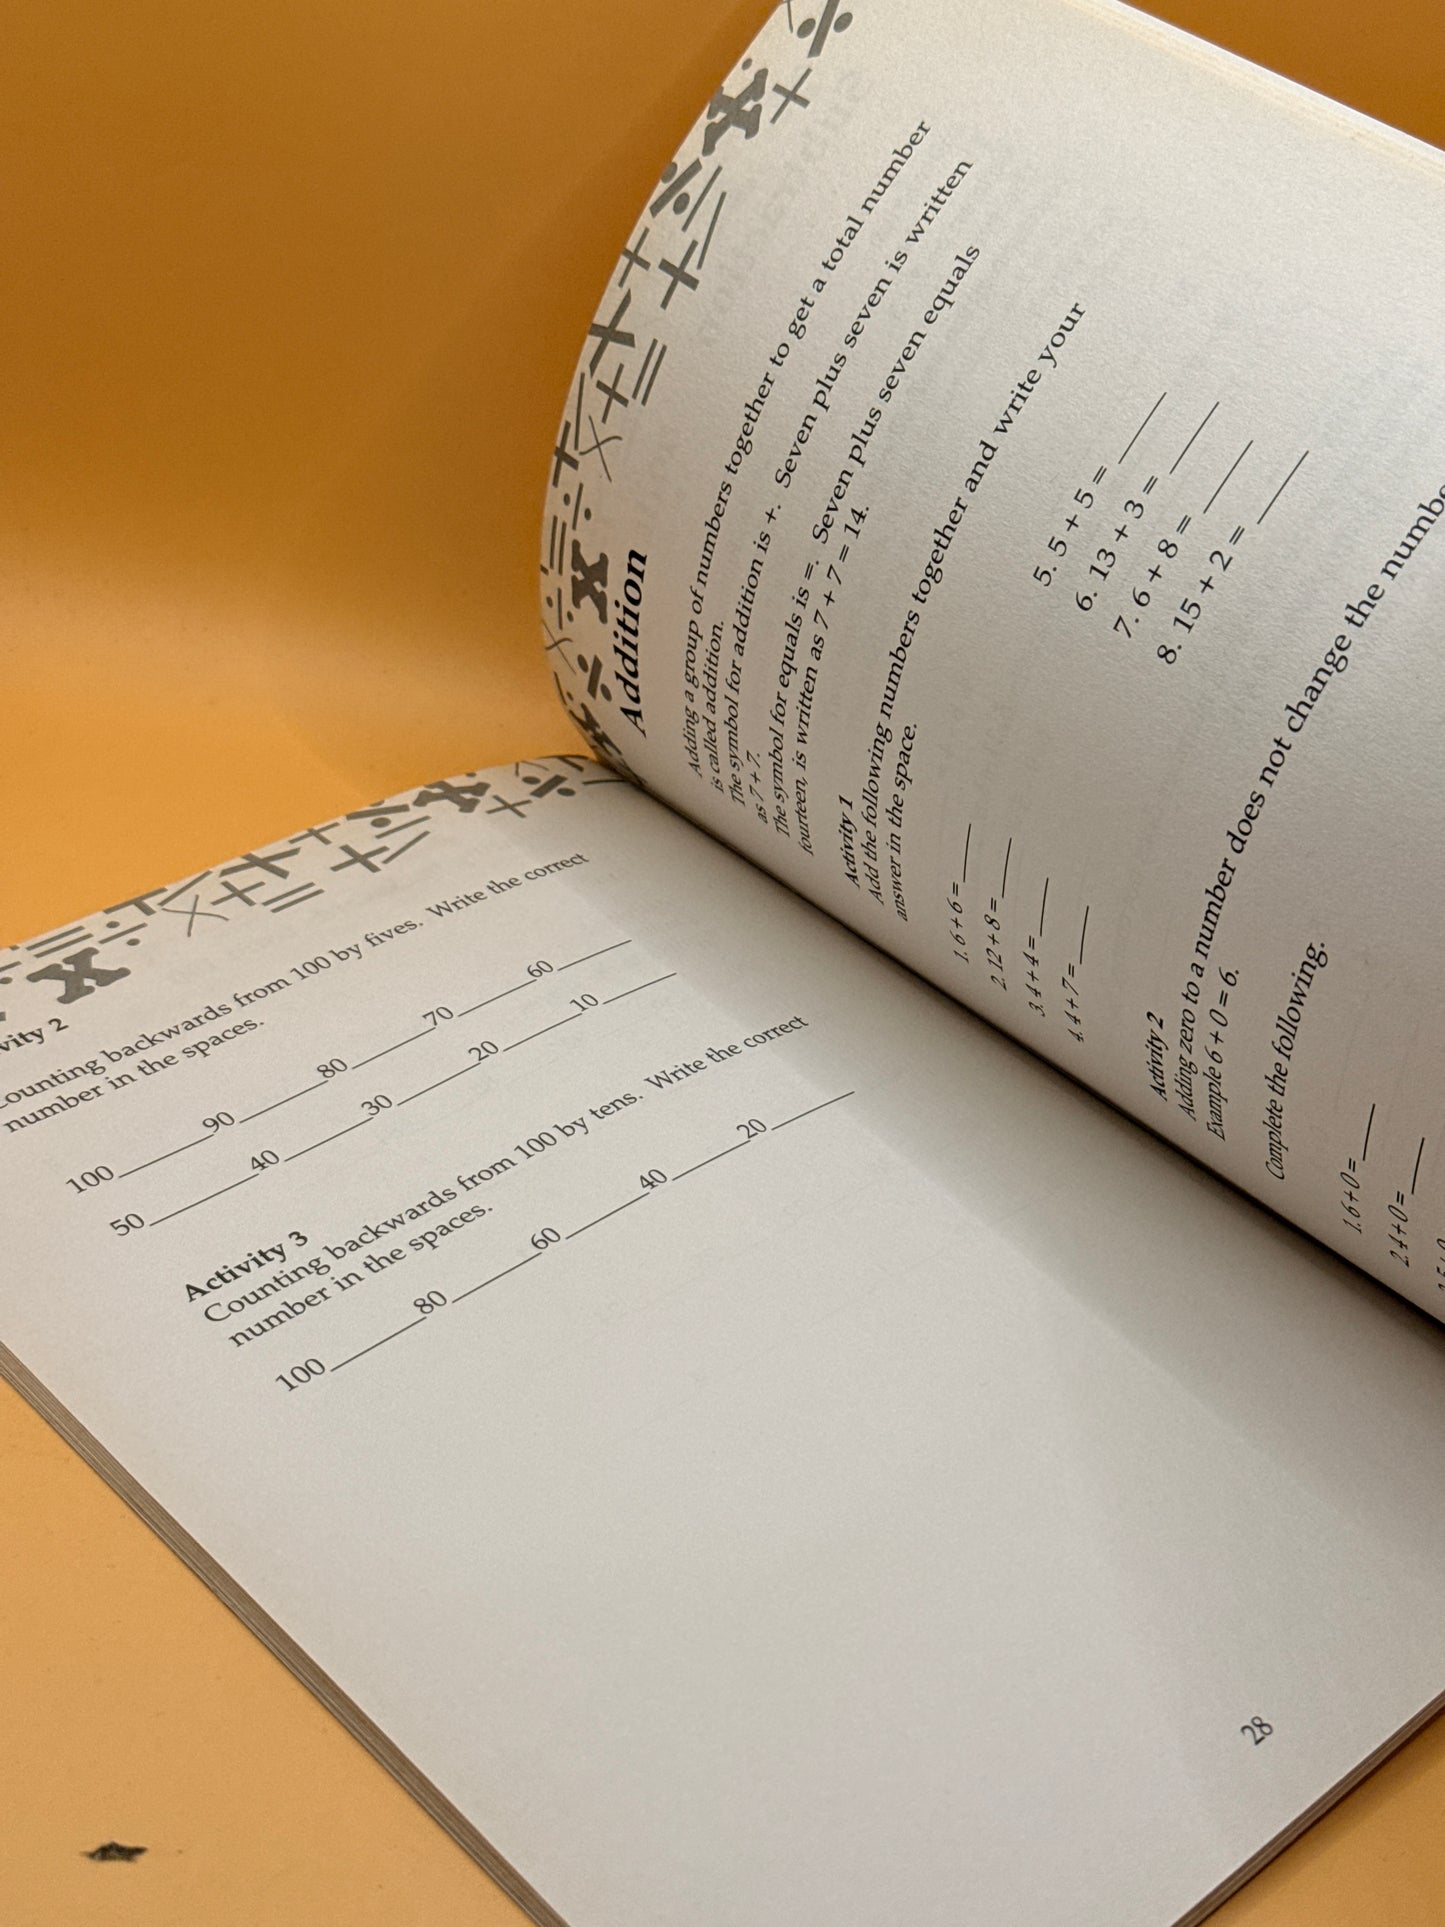 2
ounting backwards from 100 by fives. Write the correct
number in the spaces.
100______90______80______70______60______
50______40______30______20______10______
Activity 3
Counting backwards from 100 by tens. Write the correct
number in the spaces.
100______80______60______40______20______
28
Addition
Adding a group of numbers together to get a total number
is called addition.
The symbol for addition is +. Seven plus seven is written
as 7 + 7.
The symbol for equals is =. Seven plus seven equals
fourteen, is written as 7 + 7 = 14.
Activity 1
Add the following numbers together and write your
answer in the space.
1. 6 + 6 = ____
2. 12 + 8 = ____
3. 4 + 4 = ____
4. 4 + 7 = ____
5. 5 + 5 = ____
6. 13 + 3 = ____
7. 6 + 8 = ____
8. 15 + 2 = ____
Activity 2
Adding zero to a number does not change the
Example 6 + 0 = 6.
Complete the following.
1. 6 + 0 = ____
2. 4 + 0 = ____